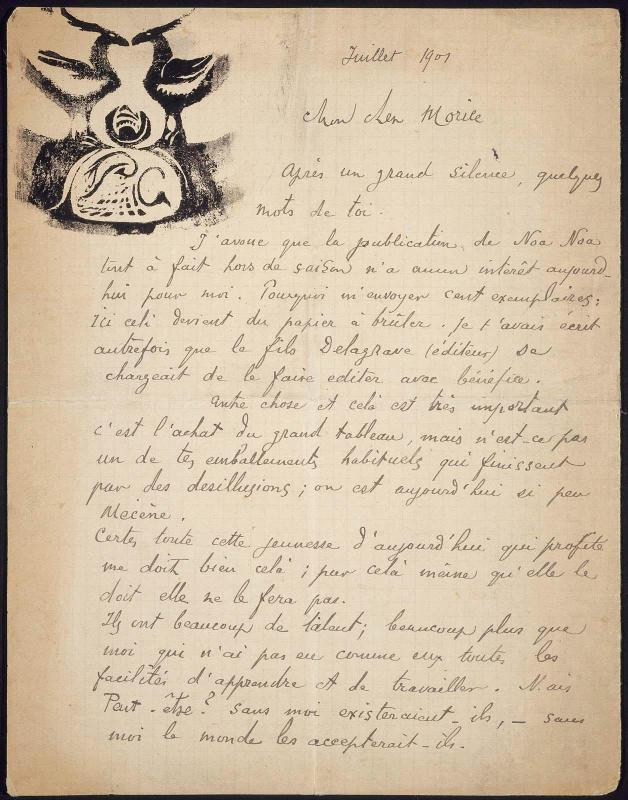 Juillet 1901
Mon cher Morice
Après un grand silence, quelques
mots de toi.
J'avoue que la publication de Noa Noa
tout à fait hors de saison n'a aucun intérêt aujourd-
hui pour moi. Pourquoi m'envoyer cent exemplaires;
Ici celà devient du papier à brûler. Je t'avais écrit
autrefois que le fils Delagrave (éditeur) se
chargeait de le faire editer avec bénéfice.
Autre chose et celà est très important
c'est l'achat du grand tableau, mais n'est-ce pas
un de tes emballements habituels qui finissent
par des desillusions; on est aujourd'hui si peu
Mécène.
Certes toute cette jeunesse d'aujourd'hui qui profite
me doit bien celà; par celà même qu'elle le
doit elle ne le fera pas.
Ils ont beaucoup de talent; beaucoup plus que
moi qui n'ai pas eu comme eux toutes les
facilités d'apprendre et de travailler. Mais
Peut-être? sans moi existeraient-ils, - sans
moi le monde les accepterait-ils.